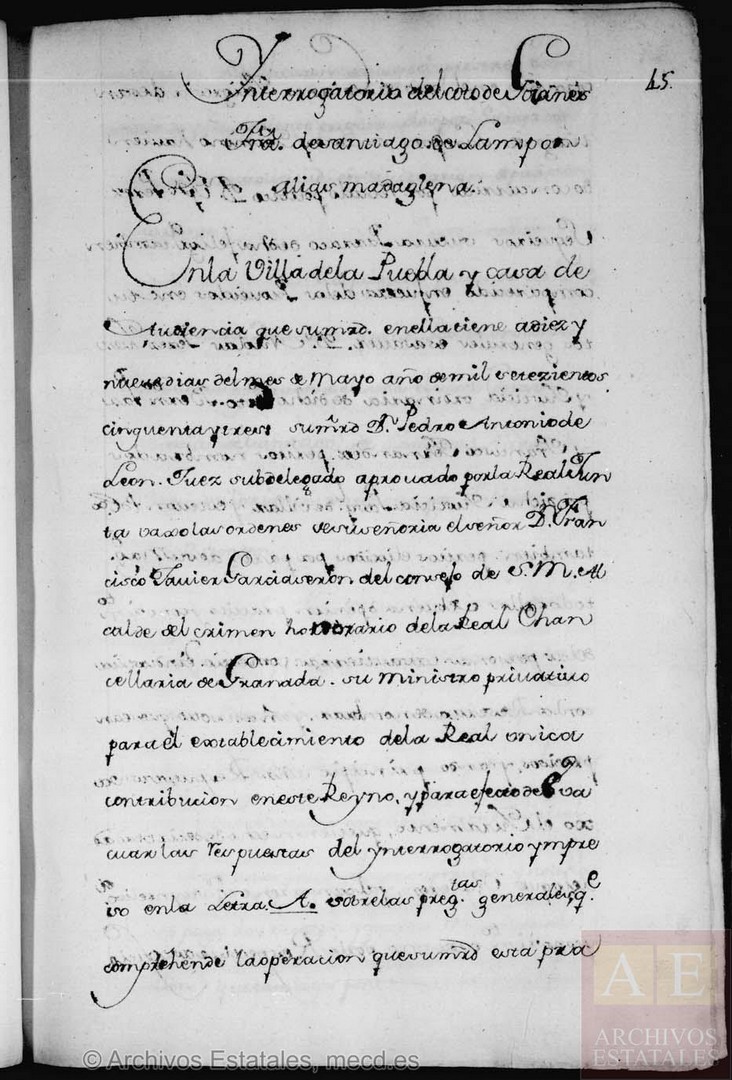 45.
Ynterrogatorio del coto de Goianes
Frâ. de santiago de Lampon
alias madaglena.
En la Villa de la Puebla y casa de
Audiencia que sumrd. en ella tiene a diez y
nueve dias del mes de Mayo año de mil setezientos
cinquenta y tres sumrd Dn. Pedro Antonio de
Leon. Juez subdelegado aprovado por la Real Jun
ta vaxo las ordenes de su señoria el señor Dn. Fran
cisco Javier Garcia seron del consejo de S. M. Al
calde del crimen honorario de la Real Chan
cellaria de Granada. su Ministro privativo
para el extablecimiento de la Real vnica
contribucion en este Reyno, y para efecto de eva
cuar las respuestas del ynterrogatorio ympre
so en la Letra. A. sobre las pregtas. generales, qe.
comprehende la operacion que sumrd esta pra
AE
ARCHIVOS
ESTATALES
© Archivos Estatales, mecd.es